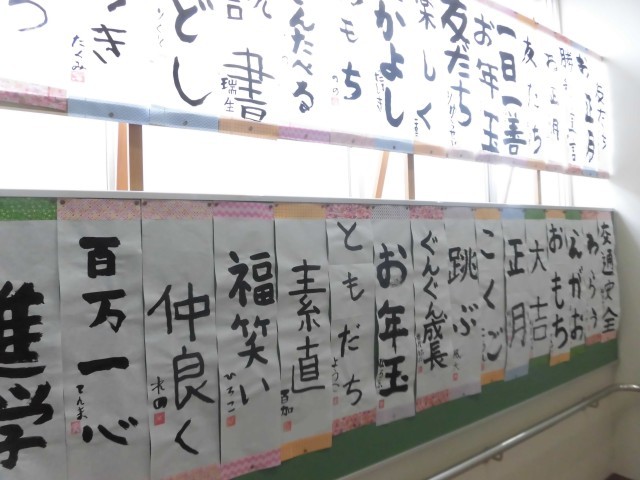 お正月
お正月
友だち
一日一善
お年玉
友だち
楽しく
かよし
もち
んたべる
読書
瑞生
どし
き
たくみ
つ
交通安全
わらう
えがお
おもち
大吉
正月
こくご
跳ぶ
ぐんぐん成長
お年玉
ともだち
素直
福笑い
ひろこ
仲良く
百万一心
てんま
進学